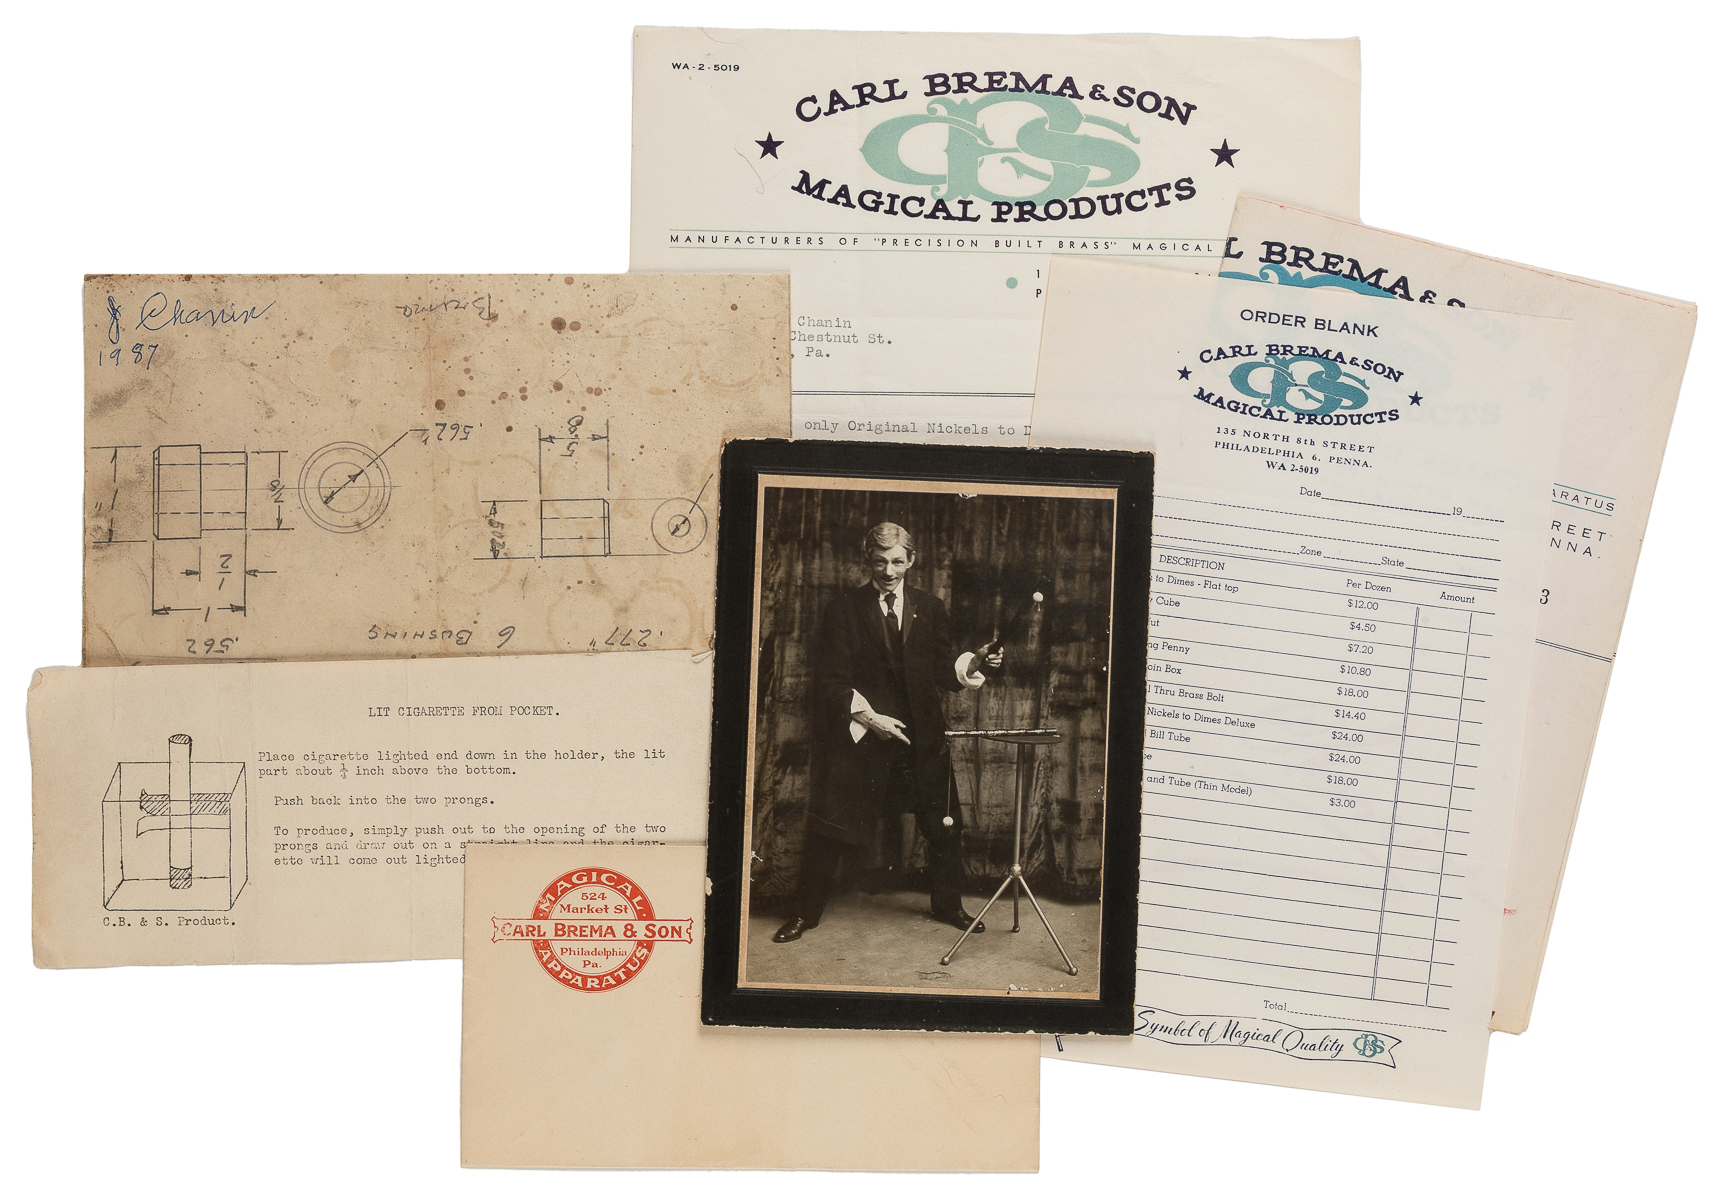 WA-2-5019
CARL BREMA & SON
CBS
MAGICAL PRODUCTS
MANUFACTURERS OF "PRECISION BUILT BRASS" MAGICAL
1
P
Chanin
Chestnut St.
, Pa.
only Original Nickels to D
L BREMA & S
ARATUS
REET
NNA.
3
ORDER BLANK
CARL BREMA & SON
CBS
MAGICAL PRODUCTS
135 NORTH 8th STREET
PHILADELPHIA 6, PENNA.
WA 2-5019
Date 19
Zone State
DESCRIPTION Per Dozen Amount
s to Dimes - Flat top $12.00
y Cube $4.50
ut $7.20
ng Penny $10.80
oin Box $18.00
l Thru Brass Bolt $14.40
Nickels to Dimes Deluxe $24.00
l Bill Tube $24.00
be $18.00
and Tube (Thin Model) $3.00
Total
Symbol of Magical Quality CBS
J Chanin
1987
Brema
.562"
5/8
1"
7/8
.502
1/2
1
.562
6 BUSHINGS
.277"
LIT CIGARETTE FROM POCKET.
Place cigarette lighted end down in the holder, the lit
part about ¼ inch above the bottom.
Push back into the two prongs.
To produce, simply push out to the opening of the two
prongs and draw out on a straight line and the cigar-
ette will come out lighted
C.B. & S. Product.
MAGICAL
524
Market St
CARL BREMA & SON
Philadelphia
Pa.
APPARATUS